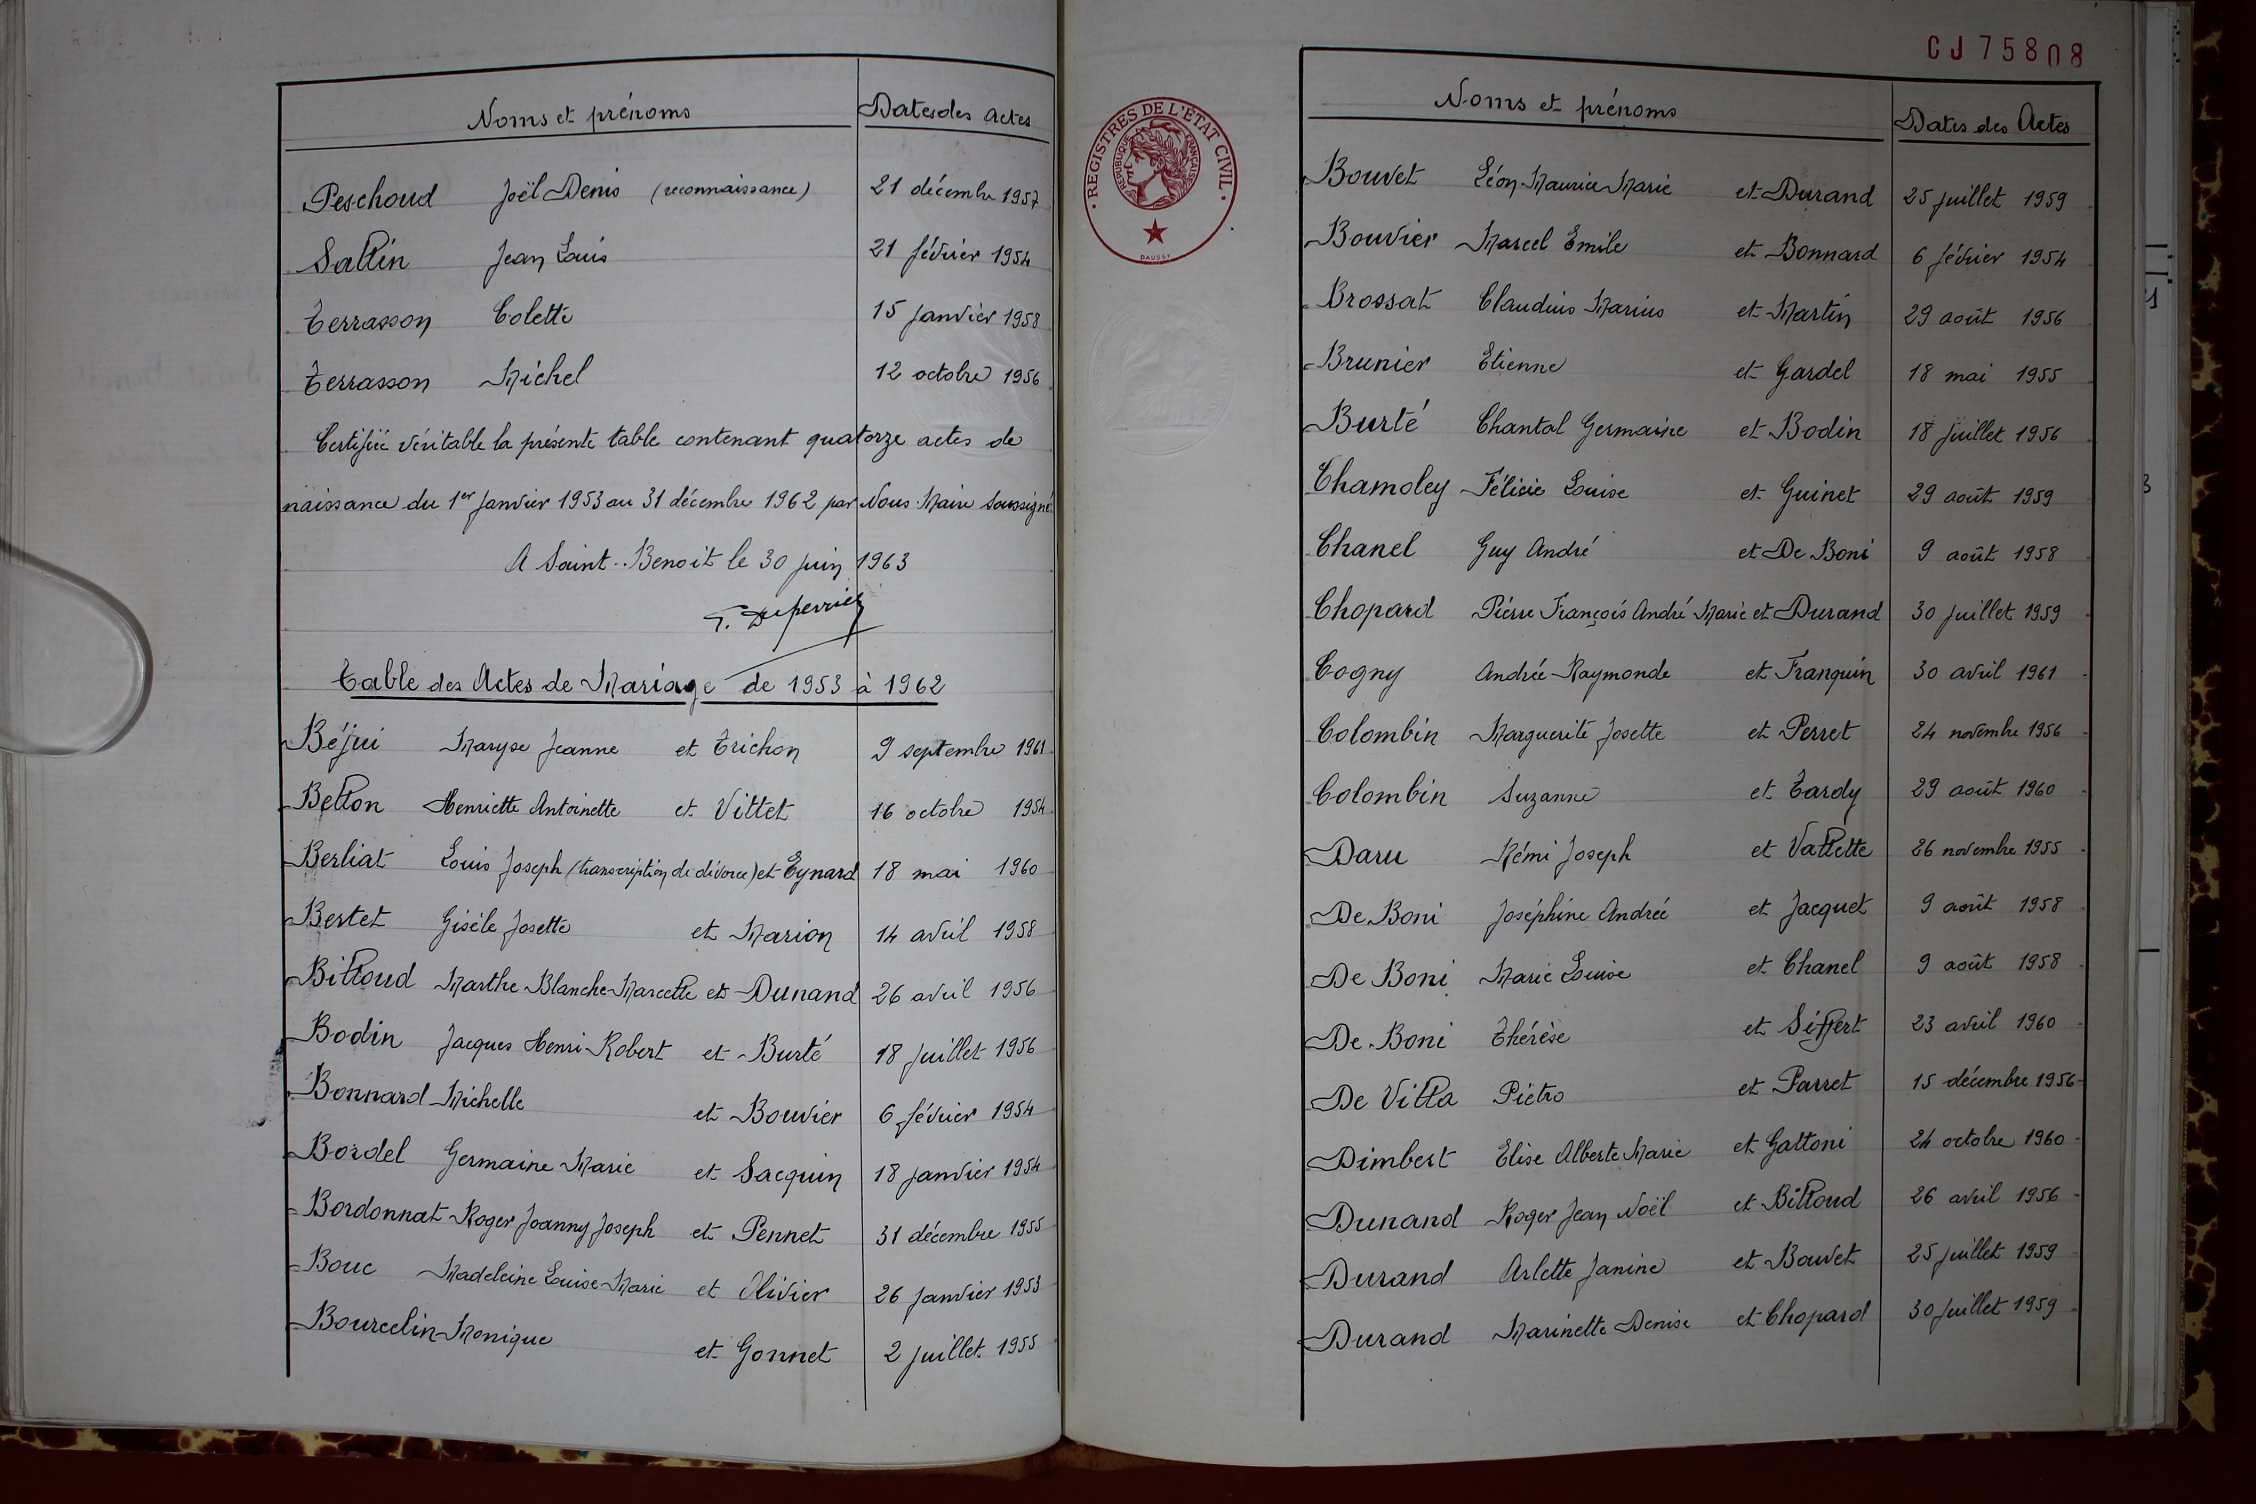 Noms et prénoms Dates des actes
Peschoud Joël Denis (reconnaissance) 21 décembre 1957
Sallin Jean Louis 21 février 1954
Terrasson Colette 15 janvier 1958
Terrasson Michel 12 octobre 1956
Certifiée véritable la présente table contenant quatorze actes de
naissance du 1er janvier 1953 au 31 décembre 1962 par Nous Maire soussigné
A Saint-Benoit le 30 juin 1963
Duperrier
Table des Actes de Mariage de 1953 à 1962
Béjui Maryse Jeanne et Trichon 9 septembre 1961
Bellon Henriette Antoinette et Vittet 16 octobre 1954
Berliat Louis Joseph (transcription de divorce) et Eynard 18 mai 1960
Bertet Gisèle Josette et Marion 14 avril 1958
Billoud Marthe Blanche Marcelle et Dunand 26 avril 1956
Bodin Jacques Henri Robert et Burté 18 juillet 1956
Bonnard Michelle et Bouvier 6 février 1954
Bordel Germaine Marie et Sacquin 18 janvier 1954
Bordonnat Roger Joanny Joseph et Pennet 31 décembre 1955
Bouc Madeleine Louise Marie et Olivier 26 janvier 1953
Bourcelin Monique et Gonnet 2 juillet 1955
CJ 75808
REGISTRES DE L'ÉTAT CIVIL
RÉPUBLIQUE FRANÇAISE
DAUSSY
Noms et prénoms Dates des Actes
Bouvet Léon Maurice Marie et Durand 25 juillet 1959
Bouvier Marcel Emile et Bonnard 6 février 1954
Brossat Claudius Marius et Martin 29 août 1956
Brunier Etienne et Gardel 18 mai 1955
Burté Chantal Germaine et Bodin 18 juillet 1956
Chamoley Félicie Louise et Guinet 29 août 1959
Chanel Guy André et De Boni 9 août 1958
Chopard Pierre François André Marie et Durand 30 juillet 1959
Cogny Andrée Raymonde et Franquin 30 avril 1961
Colombin Marguerite Josette et Perret 24 novembre 1956
Colombin Suzanne et Tardy 29 août 1960
Daru Rémi Joseph et Vallette 26 novembre 1955
De Boni Joséphine Andrée et Jacquet 9 août 1958
De Boni Marie Louise et Chanel 9 août 1958
De Boni Thérèse et Siffert 23 avril 1960
De Villa Piétro et Parret 15 décembre 1956
Dimbert Elise Alberte Marie et Galloni 24 octobre 1960
Dunand Roger Jean Noël et Billoud 26 avril 1956
Durand Arlette Janine et Bouvet 25 juillet 1959
Durand Marinette Denise et Chopard 30 juillet 1959